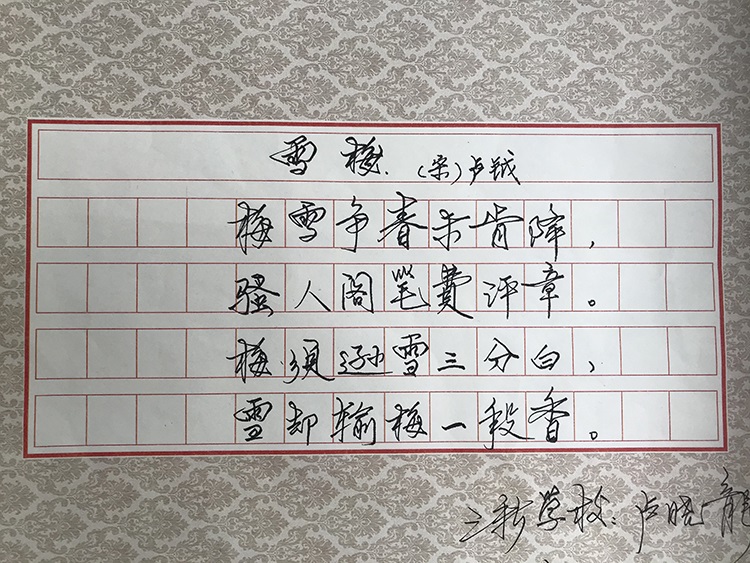 雪梅.(宋)卢钺
梅雪争春未肯降,
骚人阁笔費评章。
梅须逊雪三分白,
雪却输梅一段香。
学校:卢晓